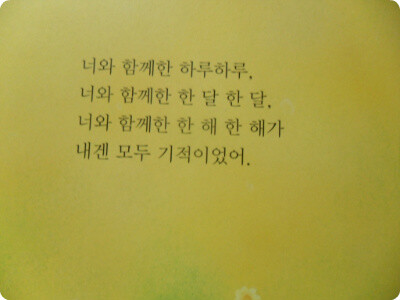 너와 함께한 하루하루,
너와 함께한 한 달 한 달,
너와 함께한 한 해 한 해가
내겐 모두 기적이었어.